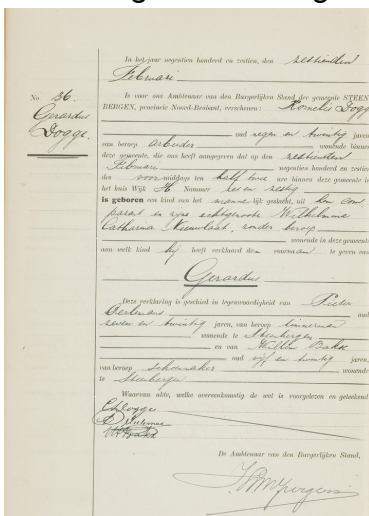 No 36.
Gerardus
Dogge.
In het jaar negentien honderd en zestien, den zestienden
Februari
Is voor ons Ambtenaar van den Burgerlijken Stand der gemeente STEEN-
BERGEN, provincie Noord-Brabant, verschenen: Kornelis Dogge
oud negen en twintig jaren,
van beroep arbeider wonende binnen
deze gemeente, die ons heeft aangegeven dat op den zestienden
Februari negentien honderd en zestien
des voormiddags ten half twee ure binnen deze gemeente in
het huis Wijk H Nummer zes en zestig
is geboren een kind van het mannelijk geslacht, uit hem com
parant en zijne echtgenoote Wilhelmina
Catharina Nieuwlaat, zonder beroep
wonende in deze gemeente
aan welk kind hij heeft verklaard den voornaam te geven van
Gerardus
Deze verklaring is geschied in tegenwoordigheid van Pieter
oud
zeven en twintig jaren, van beroep timmerman
wonende te Steenbergen
en van Willem Bakx
oud vijf en twintig jaren,
van beroep schoenmaker wonende
te Steenbergen
Waarvan akte, welke overeenkomstig de wet is voorgelezen en geteekend
C Dogge
De Ambtenaar van den Burgerlijken Stand,